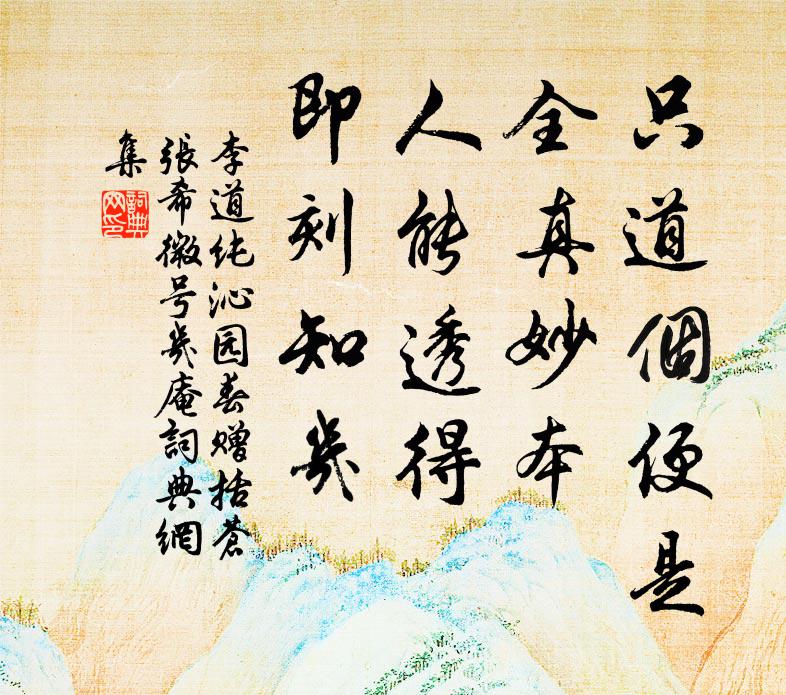 只道個便是
全真妙本
人能透得
即刻知幾
李道纯沁园春赠括蒼
張希微号幾庵詞典網
集
詞典网印